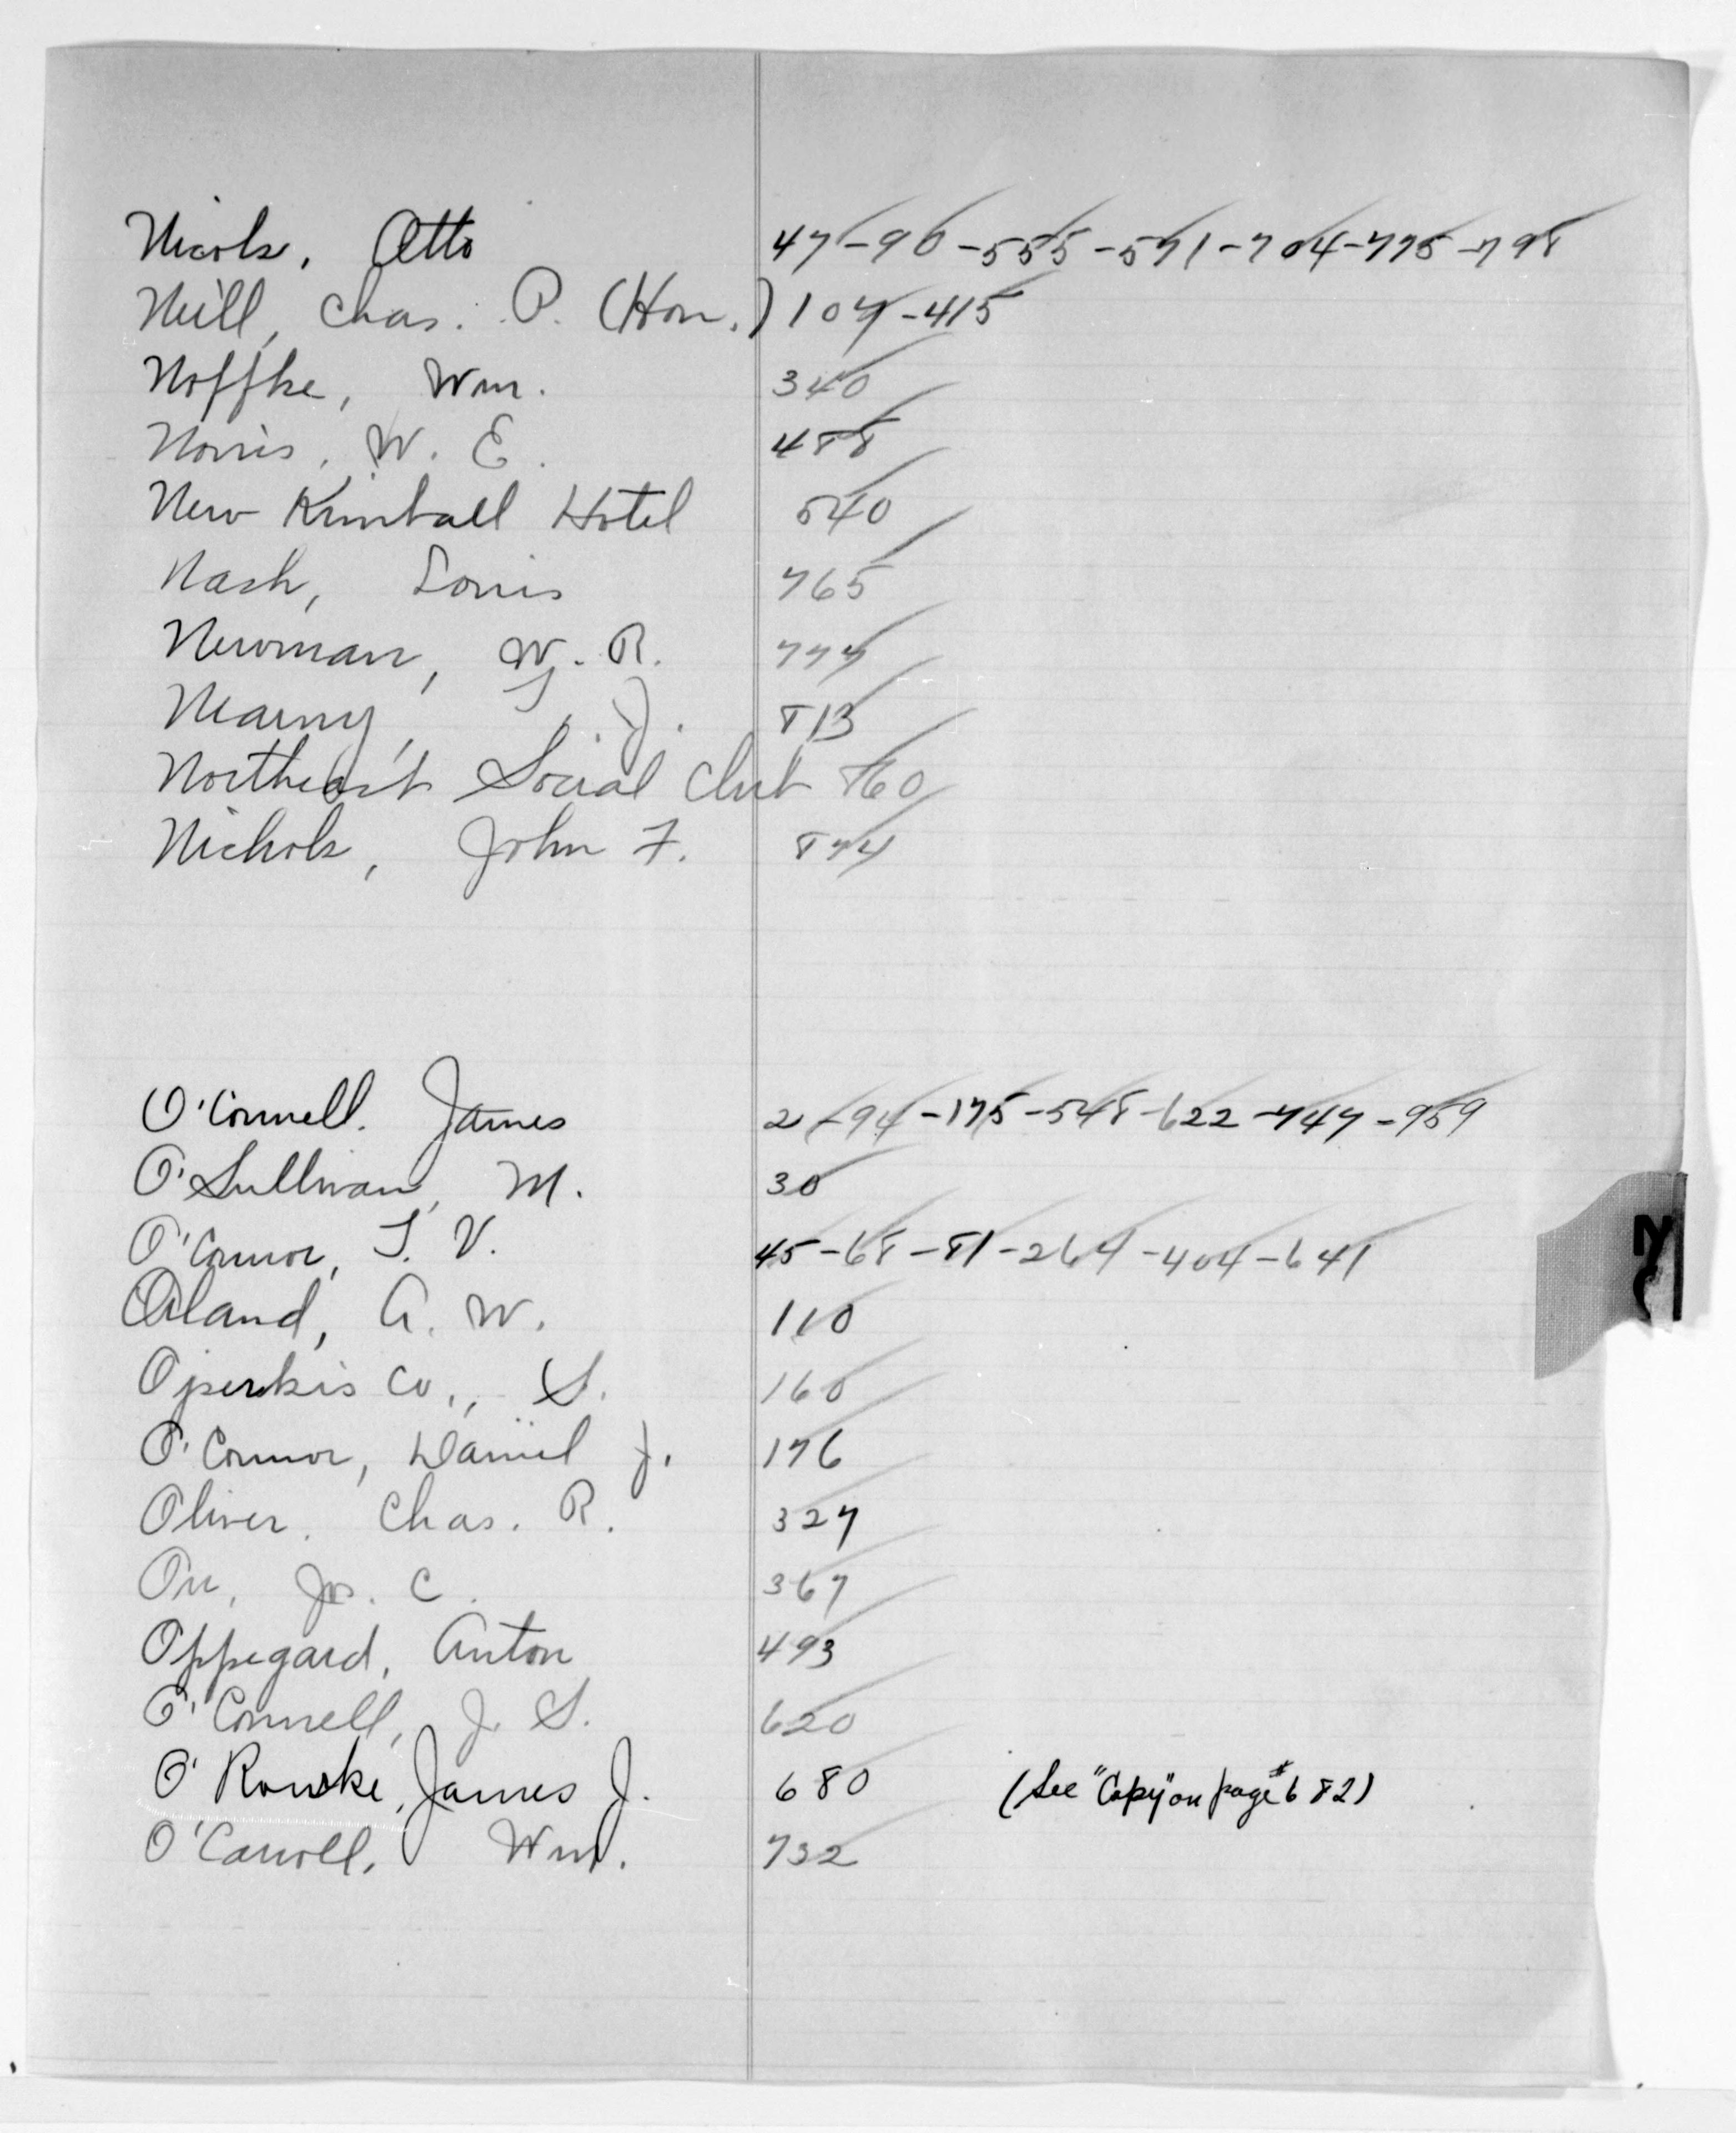 Nicols, Otto 47-90-555-571-704-775-798
Neill, Chas. P. (Hon.) 107-415
Noffke, Wm. 340
Norris, W. E. 488
New Kimball Hotel 540
Nash, Louis 765
Newman, W. R. 777
Nearny, T. J. 813
Northeast Social Club 860
Nichols, John F. 874
O'Connell. James 2-94-175-548-622-747-959
O'Sullivan, M. 30
O'Connor, T. V. 45-68-81-264-404-641
A. W. 110
Co., S. 160
O'Connor, Daniel J. 176
Oliver. Chas. R. 327
Orr, Jos. C. 367
Oppegard, Anton 493
O'Connell, J. S. 620
O'Rourke, James J. 680 (See "Copy" on page # 682)
O'Carroll, Wm. 732
N